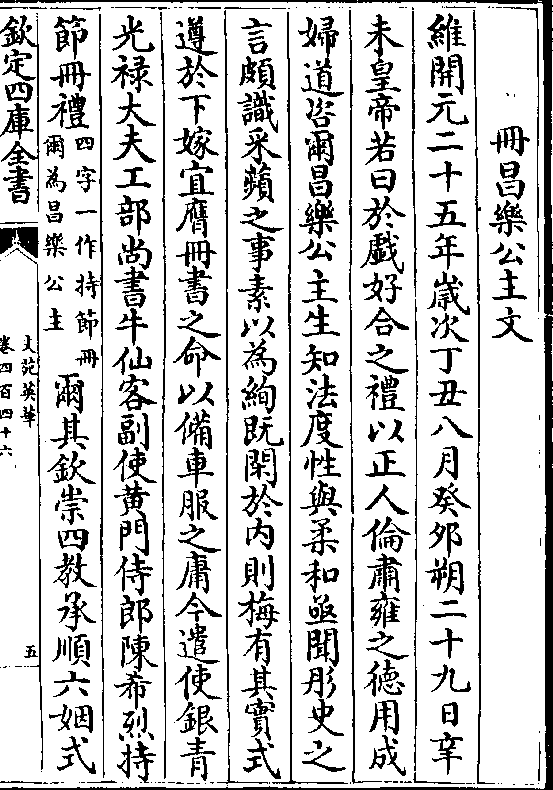 冊昌樂公主文
維開元二十五年歲次丁丑八月癸夘朔二十九日辛
未皇帝若曰於戲好合之禮以正人倫肅雍之德用成
婦道咨爾昌樂公主生知法度性與柔和亟聞彤史之
言頗識采蘋之事素以為絢既閑於內則梅有其實式
遵於下嫁宜膺冊書之命以備車服之庸今遣使銀青
光禄大夫工部尚書牛仙客副使黄門侍郎陳希烈持
節冊禮四字一作持節冊爾為昌樂公主爾其欽崇四教承順六姻式
欽定四庫全書
文苑英華
卷四百四十六
五